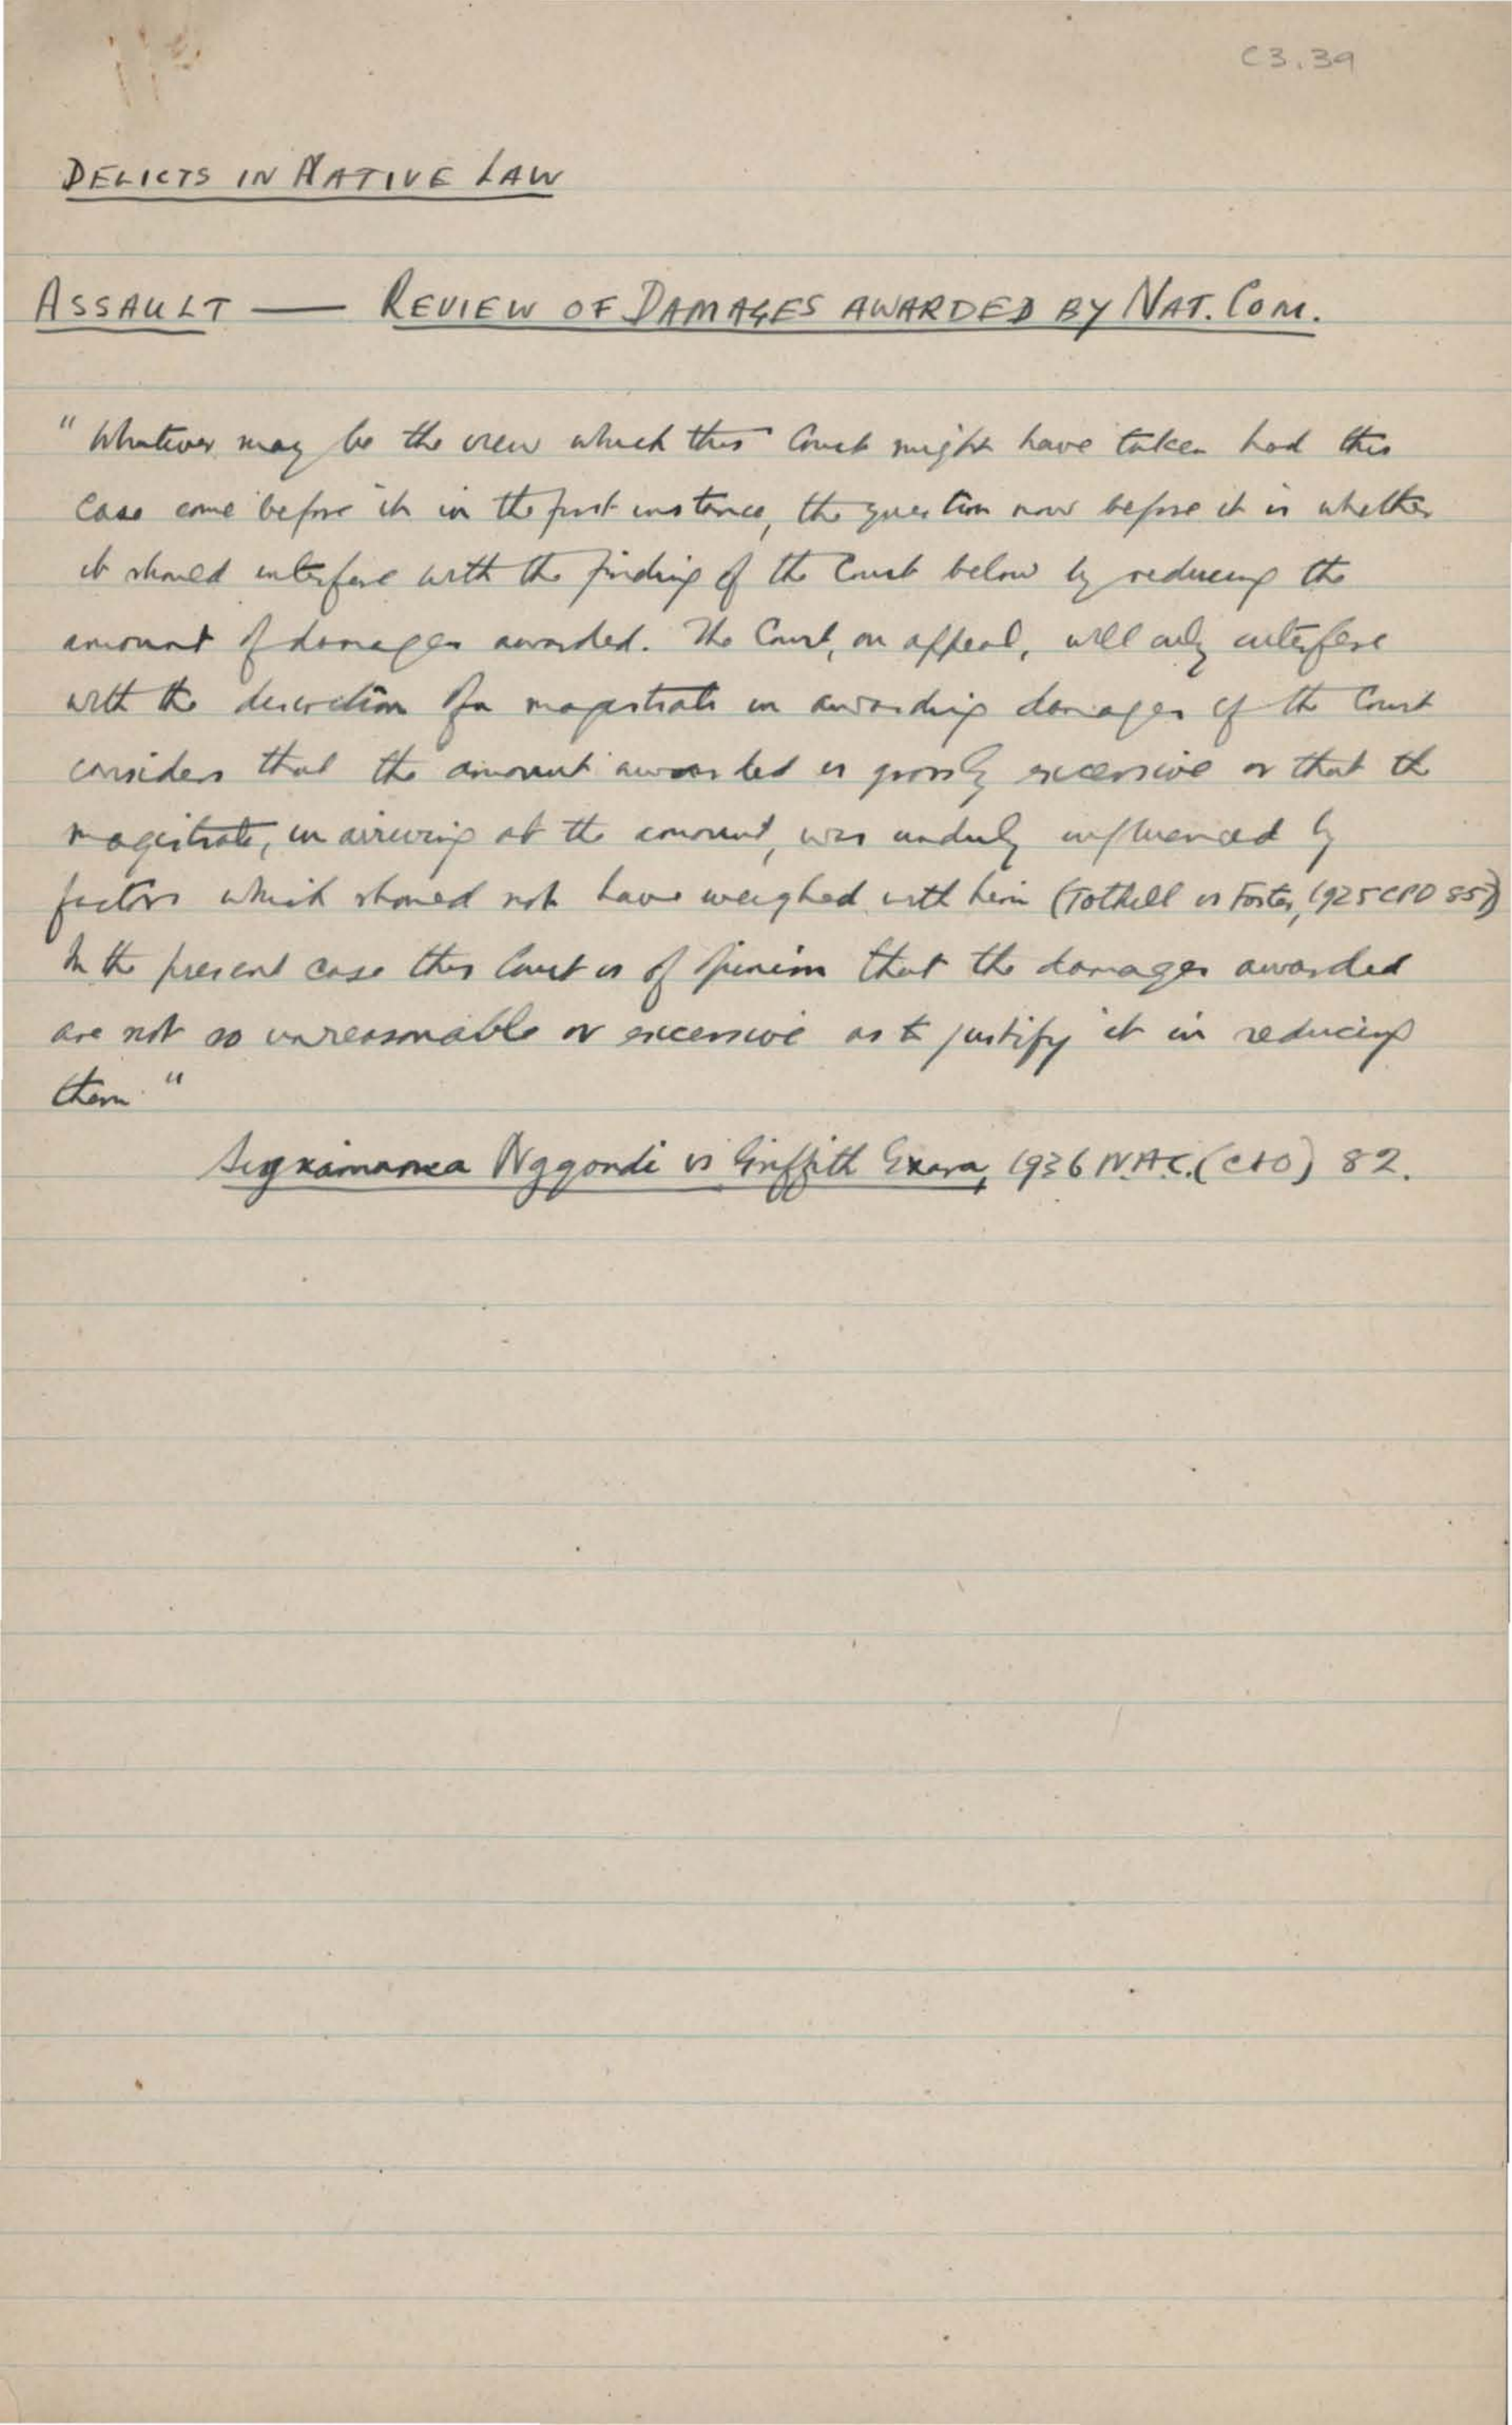 C3.39
DELICTS IN NATIVE LAW
ASSAULT — REVIEW OF DAMAGES AWARDED BY NAT. COM.
"Whatever may be the view which this Court might have taken had this
case come before it in the first instance, the question now before it is whether
it should interfere with the finding of the Court below by reducing the
amount of damages awarded. The Court, on appeal, will only interfere
with the discretion of a magistrate in awarding damages if the Court
considers that the amount awarded is grossly excessive or that the
magistrate, in arriving at the amount, was unduly influenced by
factors which should not have weighed with him (Tothill vs Foster, 1925 CPD 857)
In the present case this Court is of opinion that the damages awarded
are not so unreasonable or excessive as to justify it in reducing
them."
Nggondi vs Griffith Exara, 1936 N.A.C. (C&O) 82.